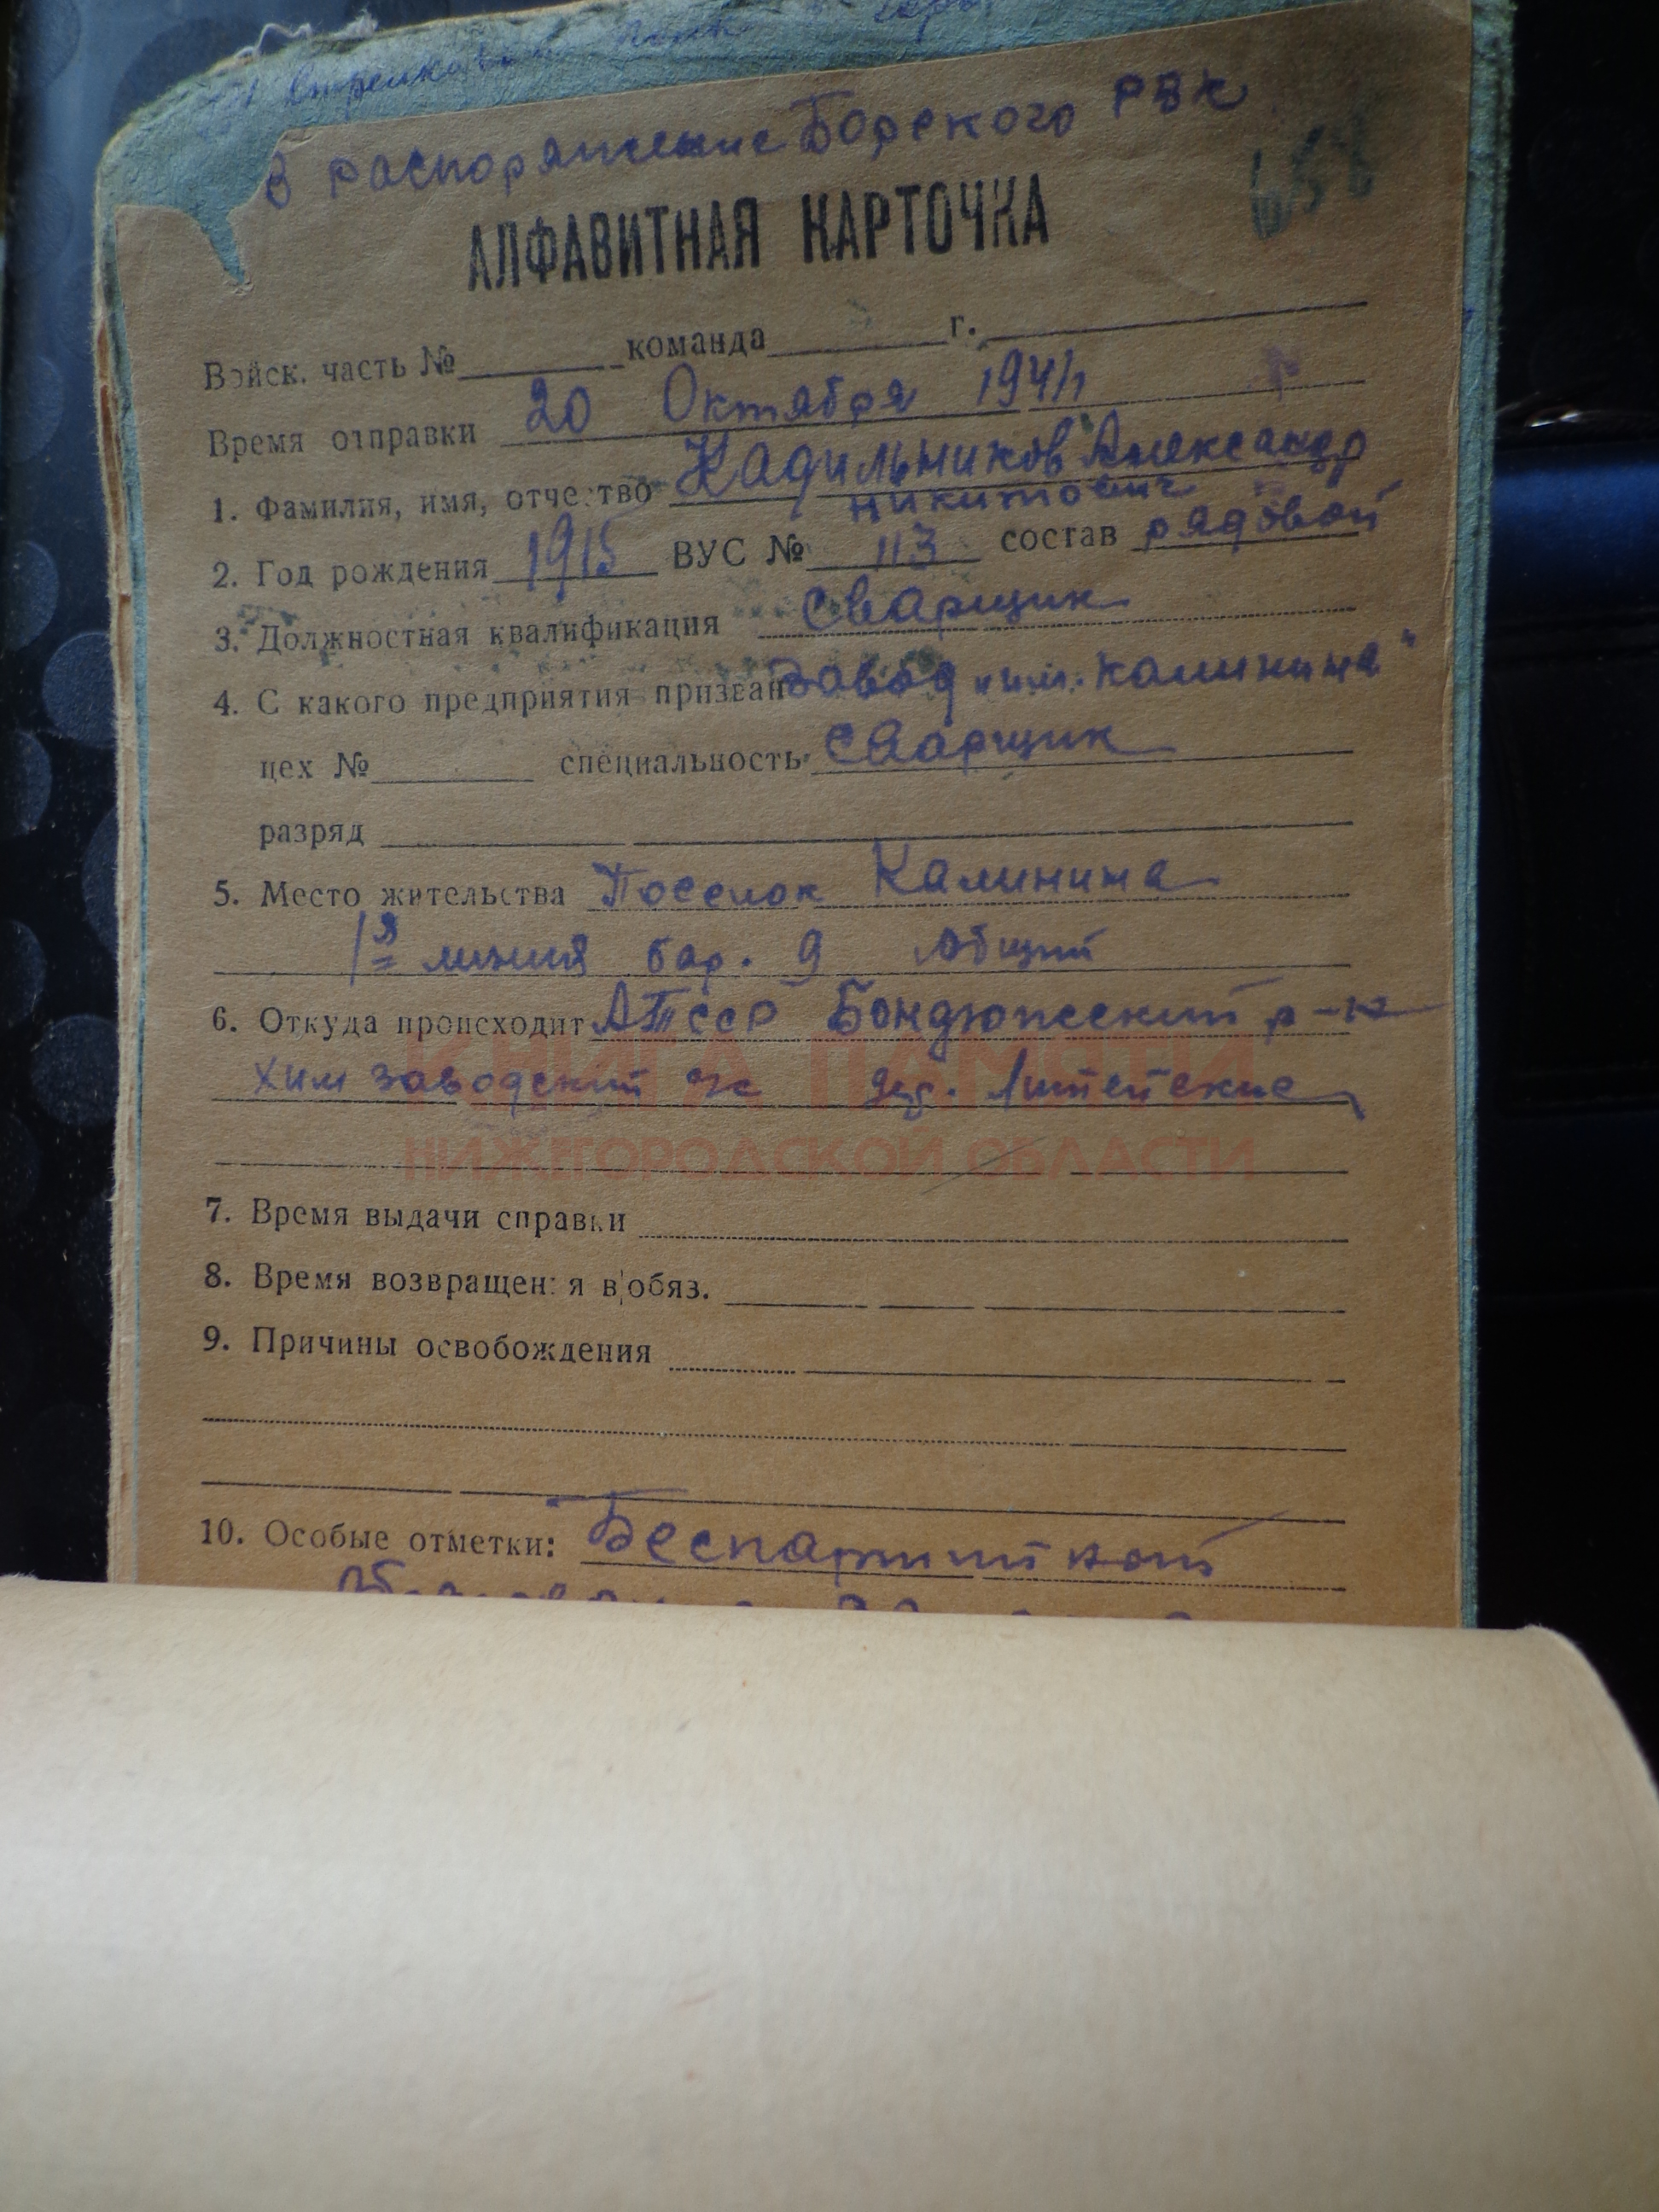 В распоряжение Борского РВК
АЛФАВИТНАЯ КАРТОЧКА
Войск. часть № команда г.
Время отправки 20 Октября 1941
1. Фамилия, имя, отчество Кадильников Александр
Никитович
2. Год рождения 1915 ВУС № 113 состав рядовой
3. Должностная квалификация Сварщик
4. С какого предприятия призван завод "им. Калинина"
цех № специальность Сварщик
разряд
5. Место жительства Поселок Калинина
1я линия бар. 9 общий
6. Откуда происходит АТССР Бондюжский р-н
Химзаводский с/с дер. Лип
КНИГА ПАМЯТИ
НИЖЕГОРОДСКОЙ ОБЛАСТИ
7. Время выдачи справки
8. Время возвращения в обяз.
9. Причины освобождения
10. Особые отметки: Беспартийной